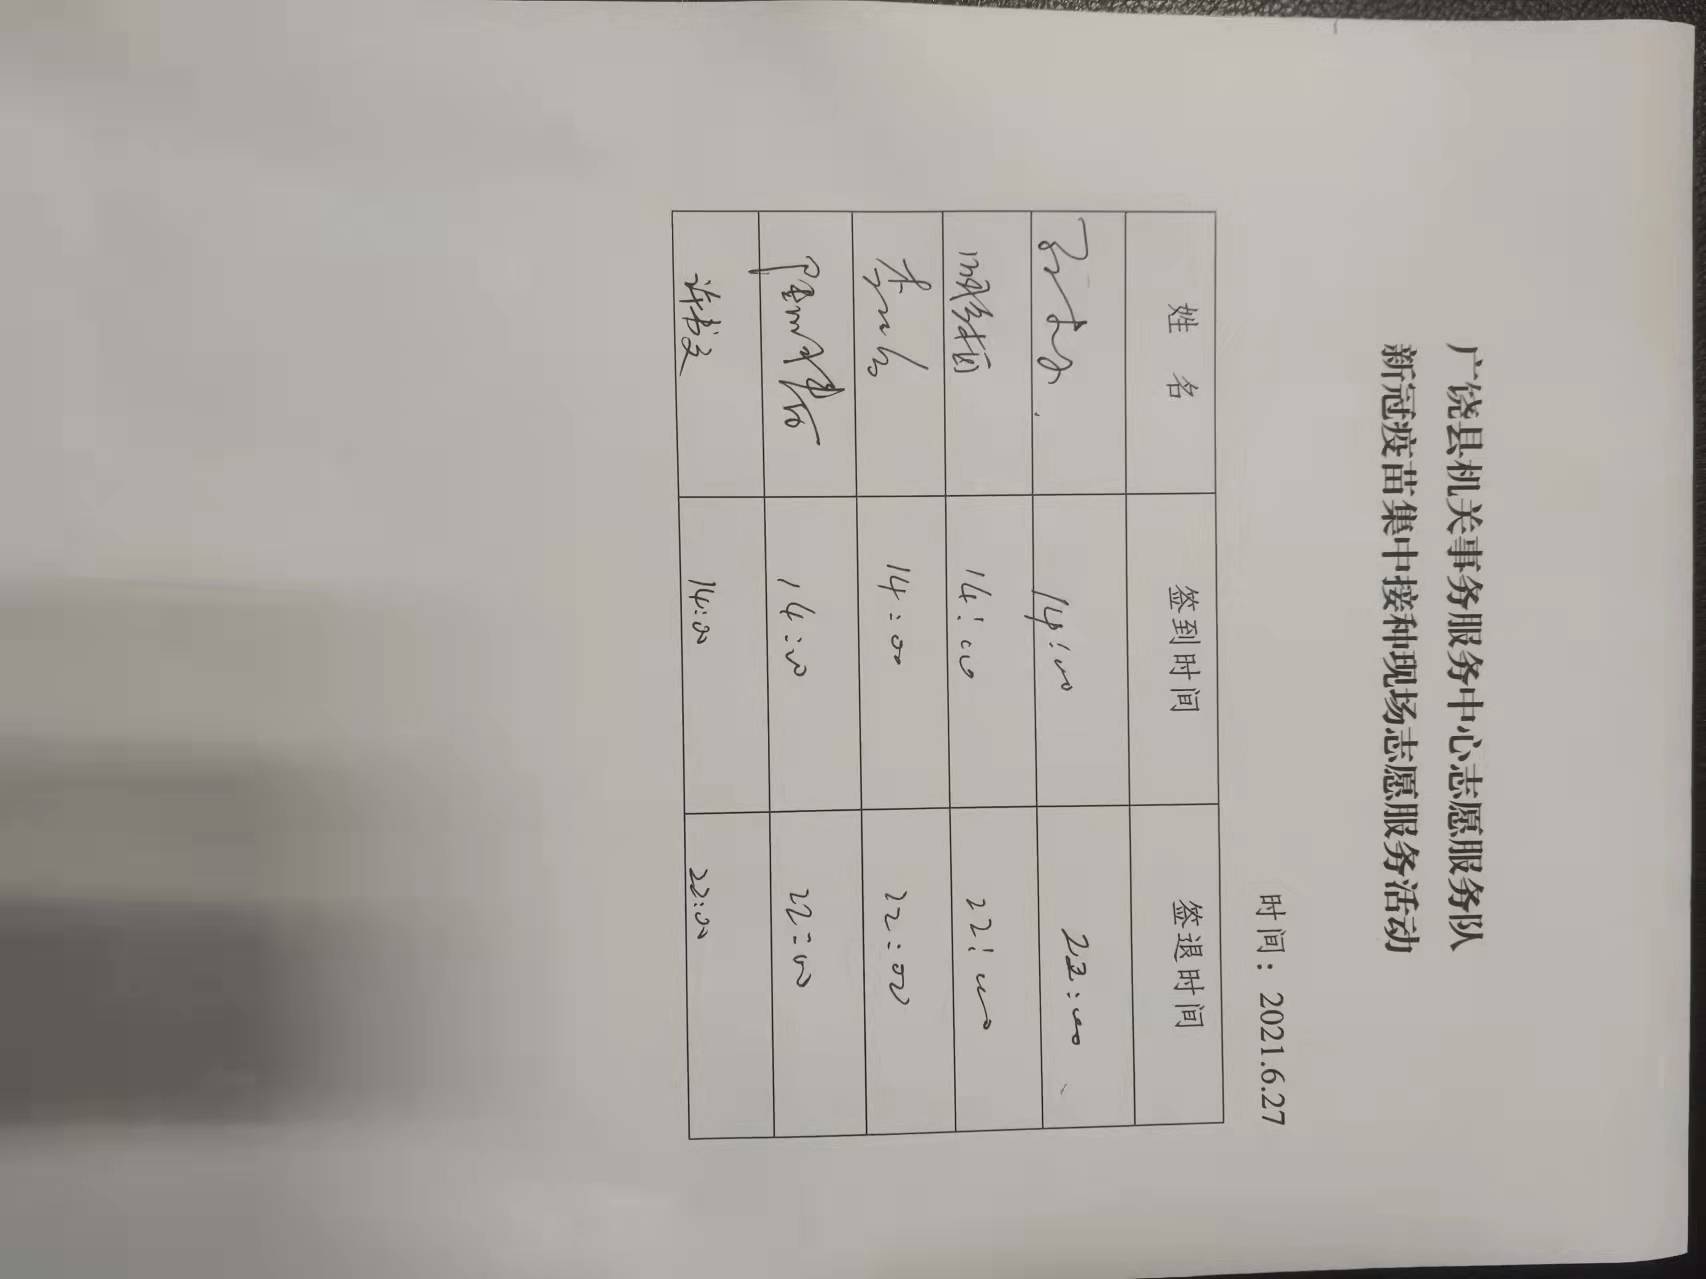 广饶县机关事务服务中心志愿服务队
新冠疫苗集中接种现场志愿服务活动
时间：2021.6.27
姓 名 签到时间 签退时间
14:00 22:00
14:00 22:00
14:00 22:00
14:00 22:00
14:00 22:00